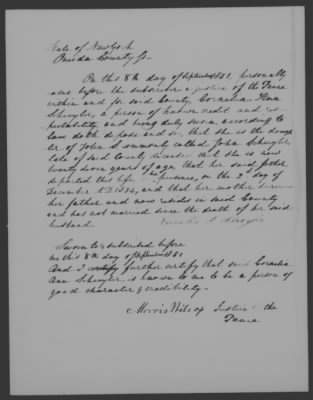 State of New York
Oneida County ss
On this 8th day of September 1851, personally
came before the subscriber a justice of the Peace
within and for said County, Cornelia Ann
Schuyler, a person of known credit and
and being duly sworn, according to
law doth depose and say that she is the daugh
er of John S commonly called John Schuyler,
late of said County deceased that she is now
twenty seven years of age, that her said father
departed this life on the 3d day of
December A.D. 1834, and that her mother
her father and now resides in said County
and has not married since the death of her said
husband.
Sworn & subscribed before
me this 8th day of September 1851
And I certify further certify that said Cornelia
Ann Schuyler is known to me to be a person of
good character & credibility.
Morris Wilcox Justice of the
Peace